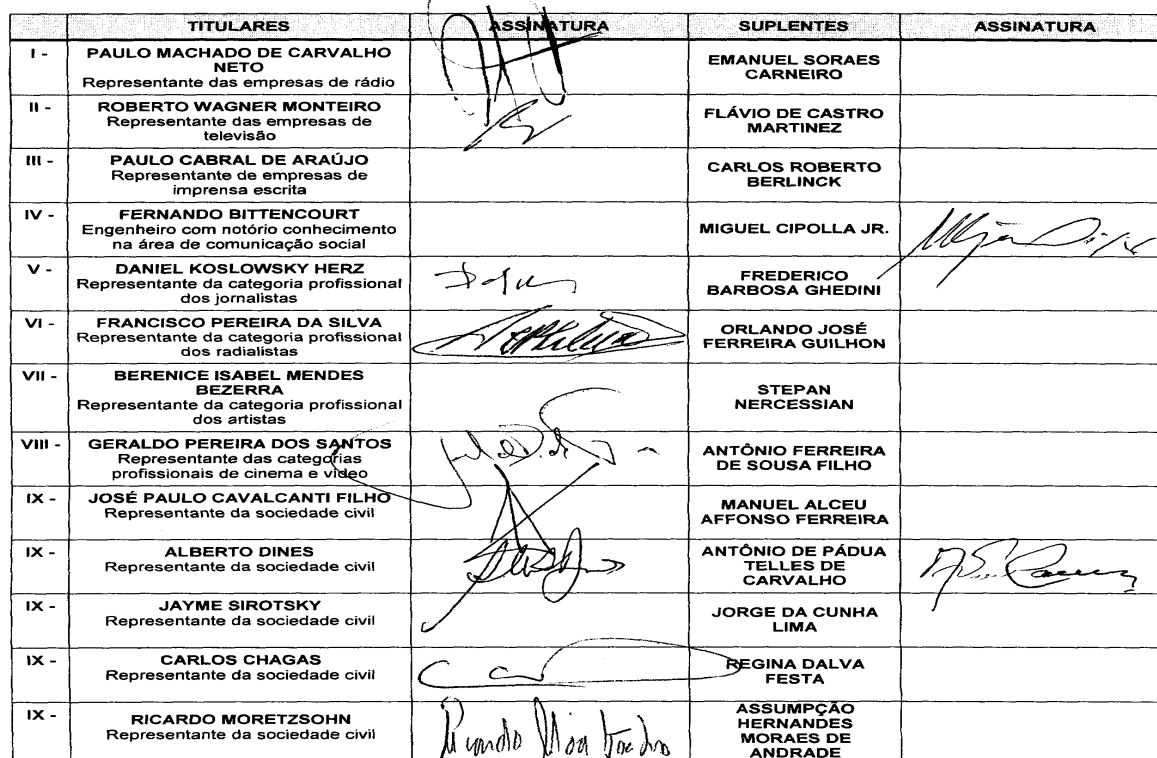 TITULARES ASSINATURA SUPLENTES ASSINATURA
I - PAULO MACHADO DE CARVALHO
NETO
Representante das empresas de rádio
EMANUEL SORAES
CARNEIRO
II - ROBERTO WAGNER MONTEIRO
Representante das empresas de
televisão
FLÁVIO DE CASTRO
MARTINEZ
III - PAULO CABRAL DE ARAÚJO
Representante de empresas de
imprensa escrita
CARLOS ROBERTO
BERLINCK
IV - FERNANDO BITTENCOURT
Engenheiro com notório conhecimento
na área de comunicação social
MIGUEL CIPOLLA JR.
V - DANIEL KOSLOWSKY HERZ
Representante da categoria profissional
dos jornalistas
FREDERICO
BARBOSA GHEDINI
VI - FRANCISCO PEREIRA DA SILVA
Representante da categoria profissional
dos radialistas
ORLANDO JOSÉ
FERREIRA GUILHON
VII - BERENICE ISABEL MENDES
BEZERRA
Representante da categoria profissional
dos artistas
STEPAN
NERCESSIAN
VIII - GERALDO PEREIRA DOS SANTOS
Representante das categorias
profissionais de cinema e vídeo
ANTÔNIO FERREIRA
DE SOUSA FILHO
IX - JOSÉ PAULO CAVALCANTI FILHO
Representante da sociedade civil
MANUEL ALCEU
AFFONSO FERREIRA
IX - ALBERTO DINES
Representante da sociedade civil
ANTÔNIO DE PÁDUA
TELLES DE
CARVALHO
IX - JAYME SIROTSKY
Representante da sociedade civil
JORGE DA CUNHA
LIMA
IX - CARLOS CHAGAS
Representante da sociedade civil
REGINA DALVA
FESTA
IX - RICARDO MORETZSOHN
Representante da sociedade civil
Ricardo
ASSUMPÇÃO
HERNANDES
MORAES DE
ANDRADE